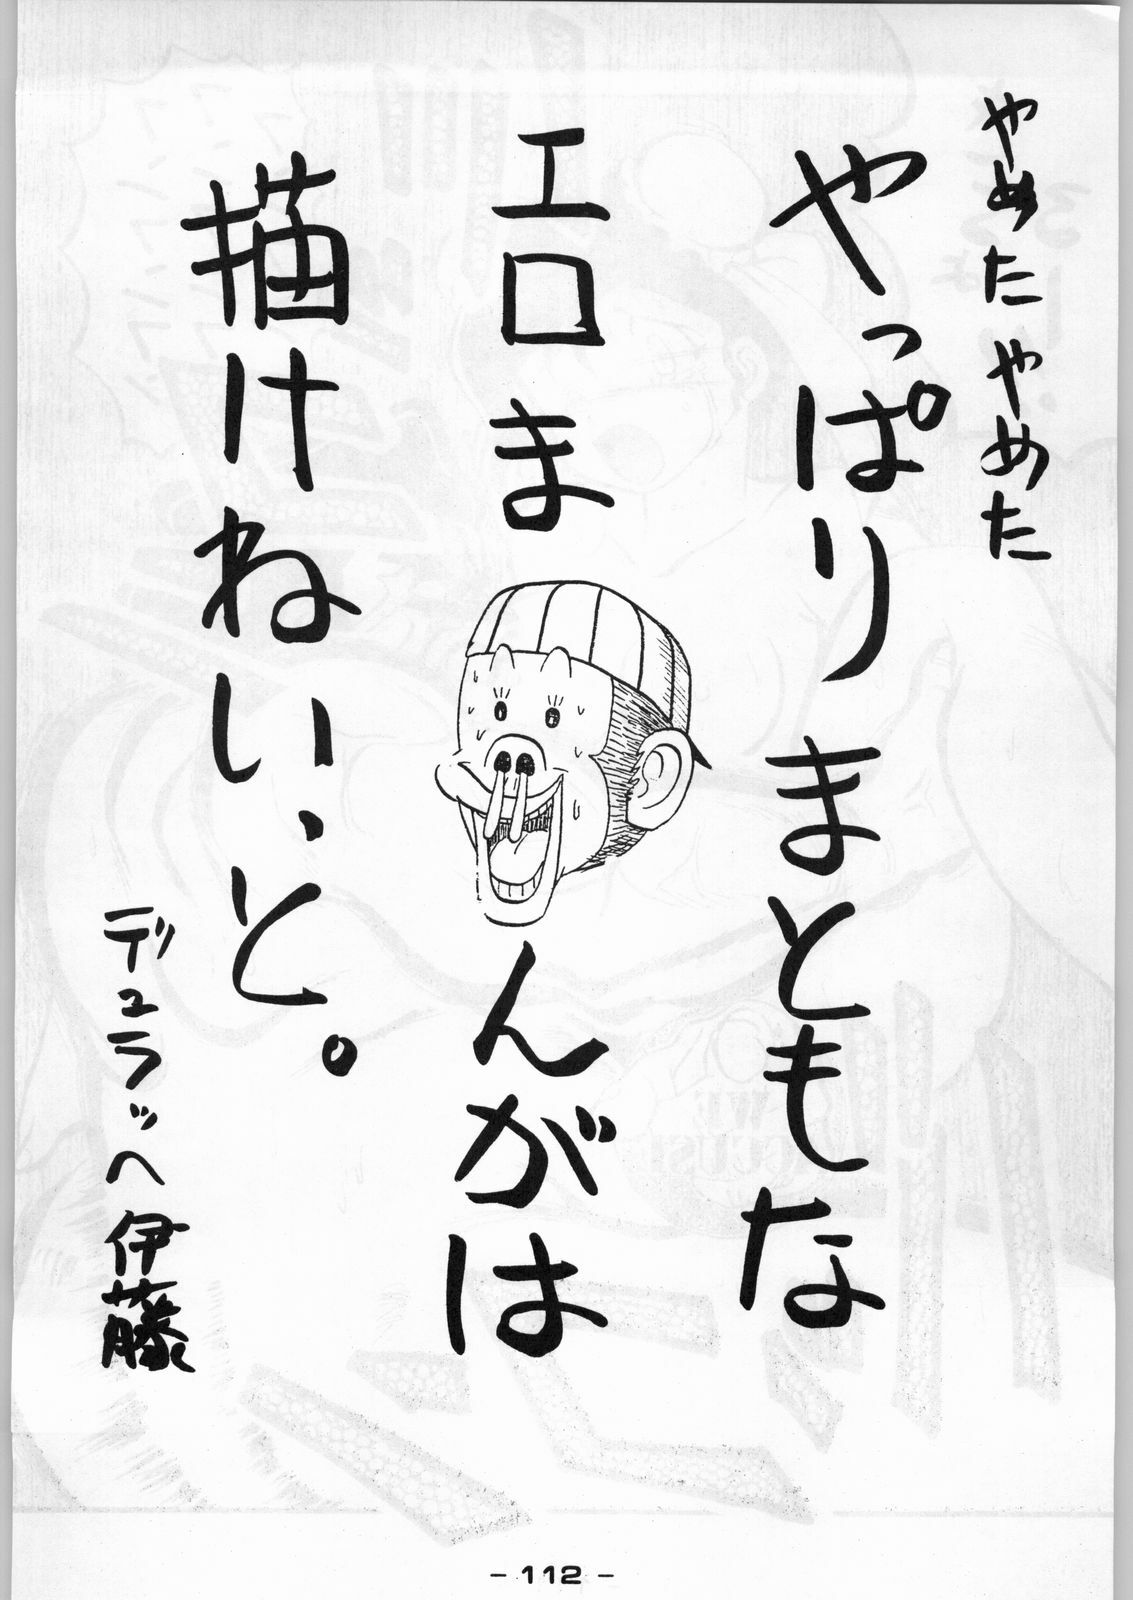 やめたやめた
やっぱりまともな
エロまんがは
描けねいっと。
デュラッヘ伊藤
- 112 -